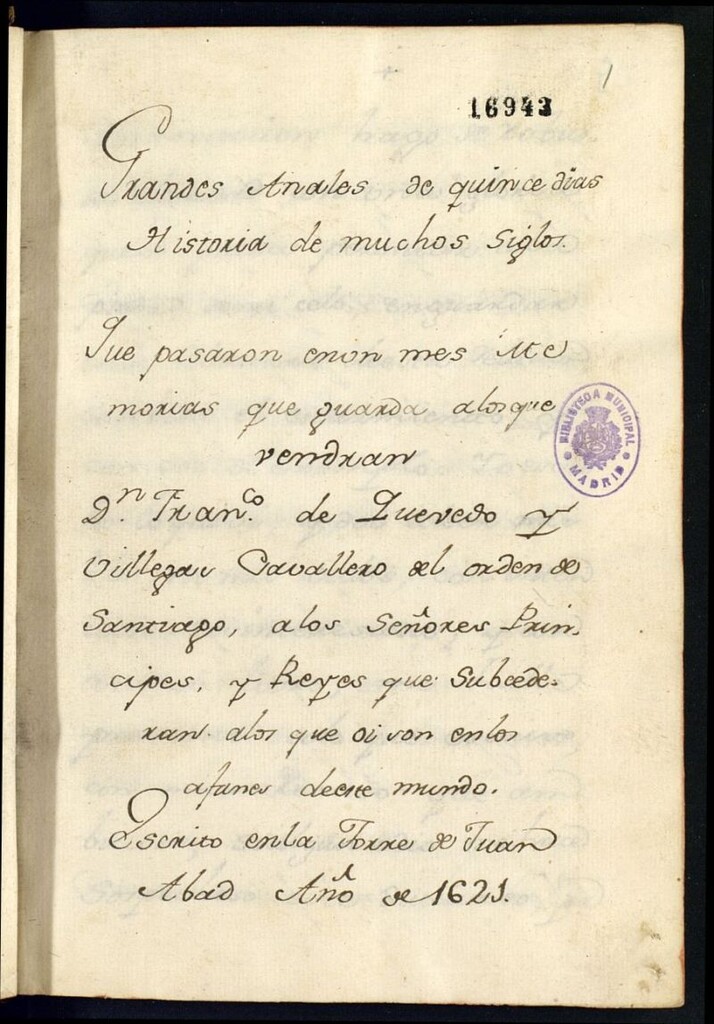 1
16943
Grandes Anales de quince dias
Historia de muchos Siglos.
Que pasaron enun mes Me
morias que guarda alosque
vendran
D.n Fran.co de Quevedo y
Villegas Cavallero del orden de
Santiago, alos Señores Prin-
cipes, y Reyes que Subcede-
ran alos que oi son enlos
afanes deeste mundo.
Escrito enla Torre de Juan
Abad Año de 1621.
BIBLIOTECA MUNICIPAL
MADRID